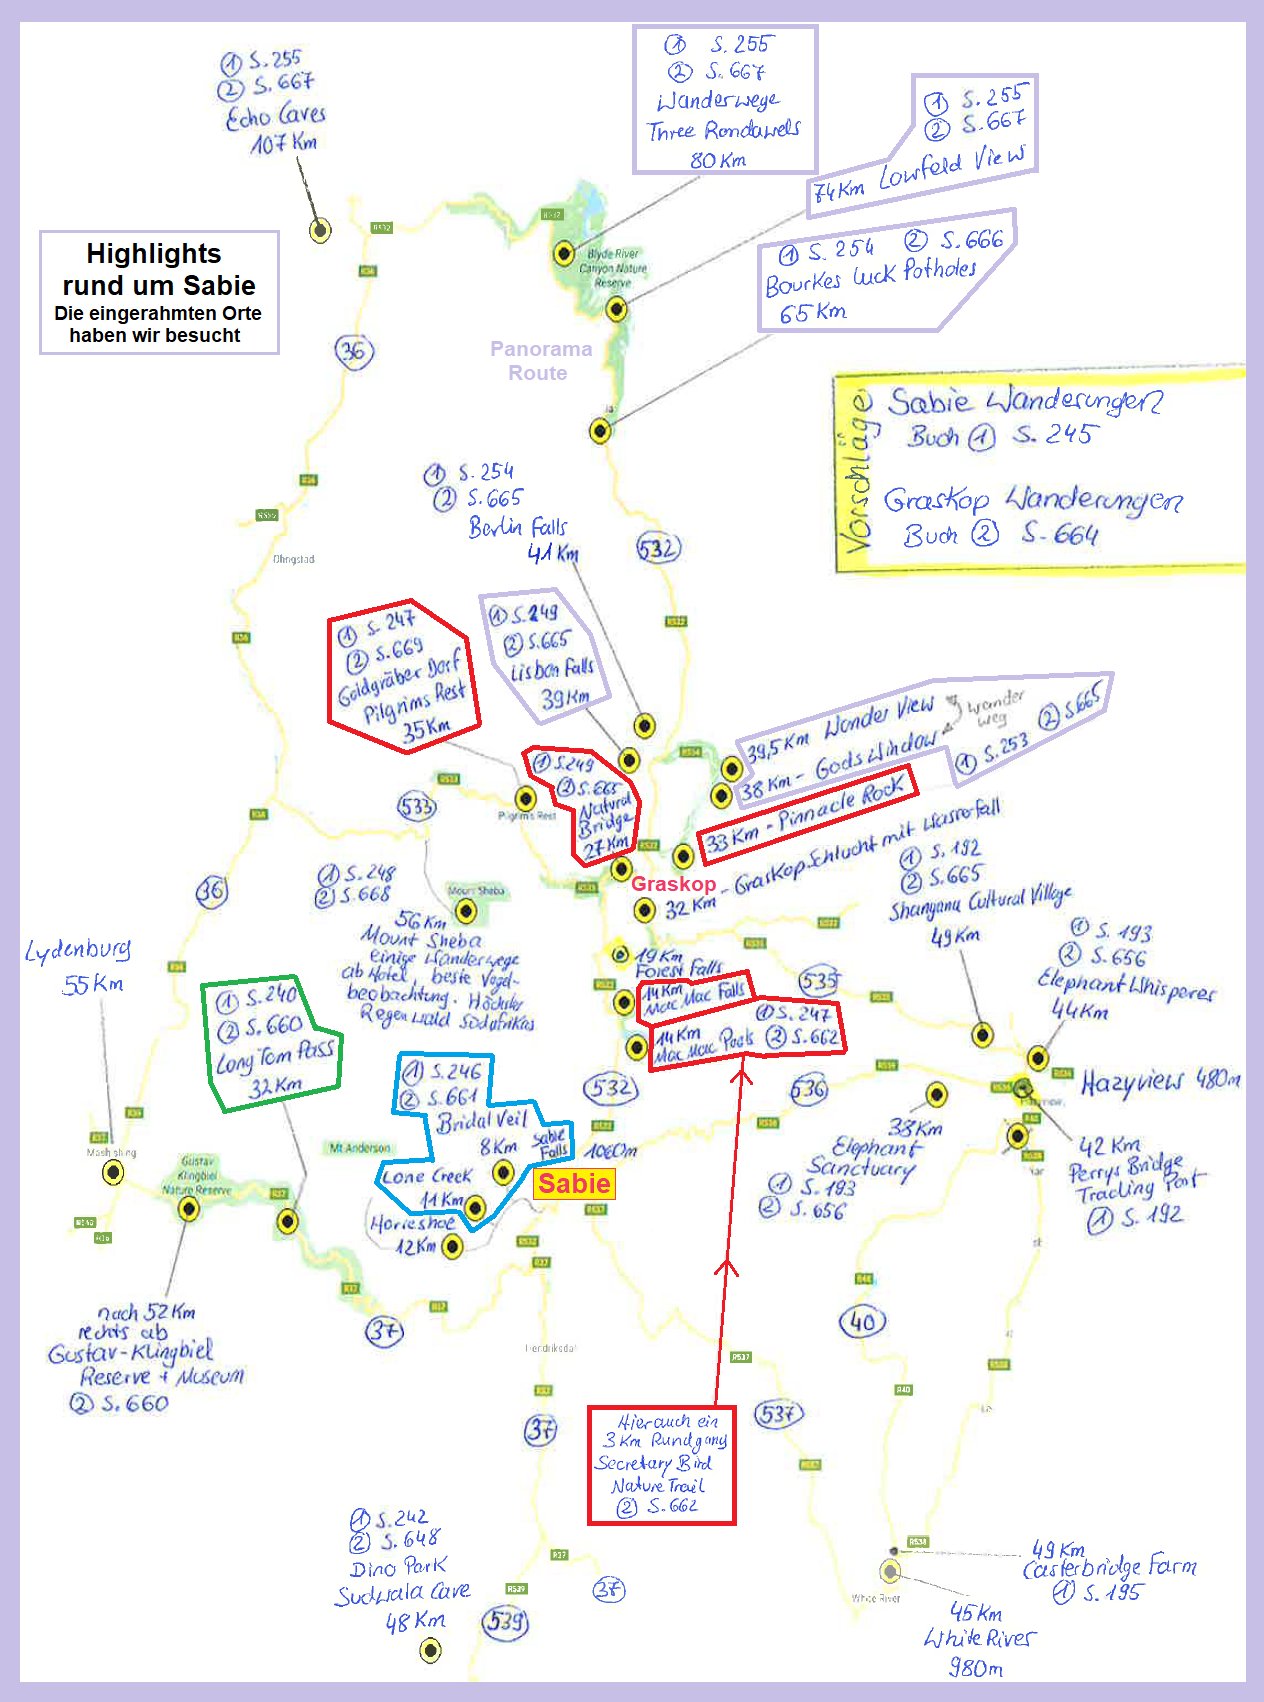 ① S.255
② S.667
Echo Caves
107 Km
① S.255
② S.667
Wanderwege
Three Rondawels
80 Km
① S.255
② S.667
74 Km Lowfeld View
① S.254 ② S.666
Bourkes Luck Potholes
65 Km
Highlights
rund um Sabie
Die eingerahmten Orte
haben wir besucht
R532
R36
Blyde River
Canyon Nature
Reserve
Panorama
Route
36
Vorschläge
Sabie Wanderungen
Buch ① S. 245
Graskop Wanderungen
Buch ② S-664
① S.254
② S.665
Berlin Falls
41 Km
532
R36
R555
Ohrigstad
R36
R532
① S. 247
② S.669
Goldgräber Dorf
Pilgrims Rest
35 Km
① S.249
② S.665
Lisbon Falls
39 Km
39,5 Km Wonder View
38 Km - Gods Window
Wander
weg
① S.253 ② S.665
33 Km - Pinnacle Rock
32 Km - Graskop Schlucht mit Wasserfall
① S.249
② S.665
Natural
Bridge
27 Km
R534
R533
533
Pilgrim's Rest
R36
R532
R533
Graskop
① S.248
② S.668
56 Km
Mount Sheba
einige Wanderwege
ab Hotel, beste Vogel-
beobachtung. Höchster
Regenwald Südafrikas
Mount Sheba
36
① S. 192
② S.665
Shangana Cultural Village
49 Km
① S. 193
② S. 656
Elephant Whisperer
44 Km
Lydenburg
55 Km
19 Km
Forest Falls
14 Km
Mac Mac Falls
14 Km
Mac Mac Pools
① S.247
② S.662
535
① S.240
② S.660
Long Tom Pass
32 Km
① S.246
② S.661
Bridal Veil
8 Km
Sabie
Falls
Lone Creek
11 Km
Horseshoe
12 Km
532
536
1060m
Sabie
Mt Anderson
Hazyview 480m
38 Km
Elephant
Sanctuary
① S.193
② S.656
42 Km
Perrys Bridge
Trading Post
① S. 192
Mashishing
Gustav
Klingbiel
Nature Reserve
R37
R532
R537
R37
R37
nach 52 Km
rechts ab
Gustav-Klingbiel
Reserve + Museum
② S.660
37
Hendriksdal
40
R537
R40
R538
37
537
Hier auch ein
3 Km Rundgang
Secretary Bird
Nature Trail
② S.662
① S.242
② S.648
Dino Park
Sudwala Cave
48 Km
R37
37
R539
539
R538
White River
49 Km
Casterbridge Farm
① S.195
45 Km
White River
980m